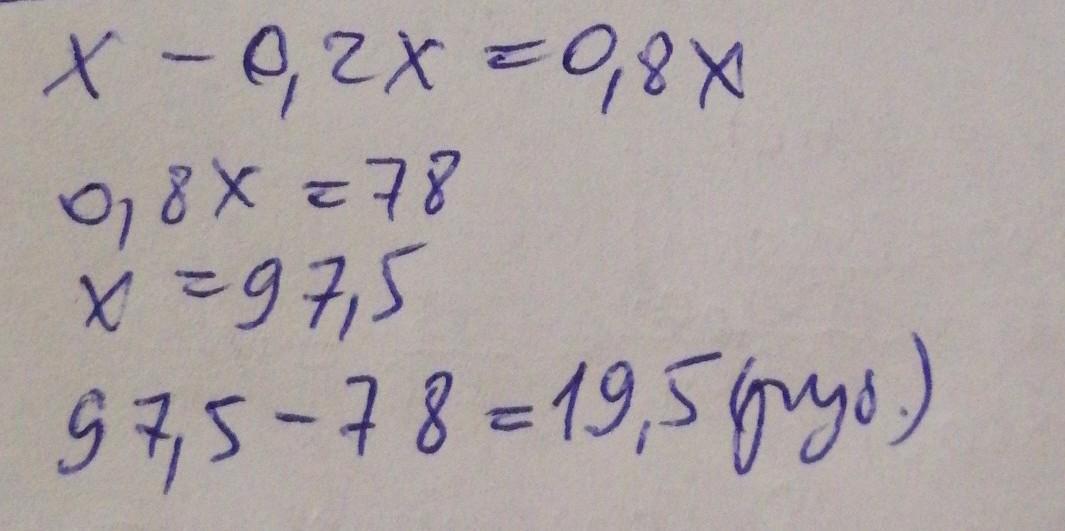 x - 0,2x = 0,8x
0,8x = 78
x = 97,5
97,5 - 78 = 19,5 (руб.)